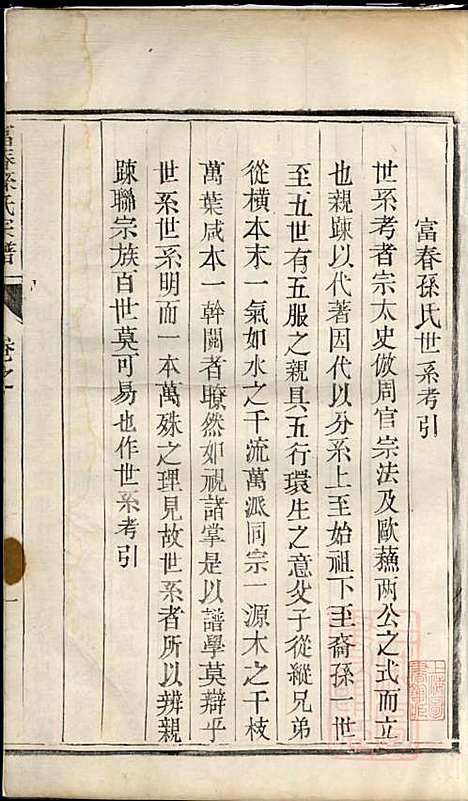 富春孫氏世系考引
世系考者宗太史倣周官宗法及歐蘓两公之式而立
也親踈以代著因代以分系上至始祖下至裔孫一世
至五世有五服之親具五行環生之意父子從縱兄弟
從橫本末一氣如水之千流萬派同宗一源木之千枝
萬葉咸本一幹閱者瞭然如視諸掌是以譜學莫辯乎
世系世系明而一本萬殊之理見故世系者所以辨親
踈聯宗族百世莫可易也作世系考引
富春孫氏宗譜
卷之一